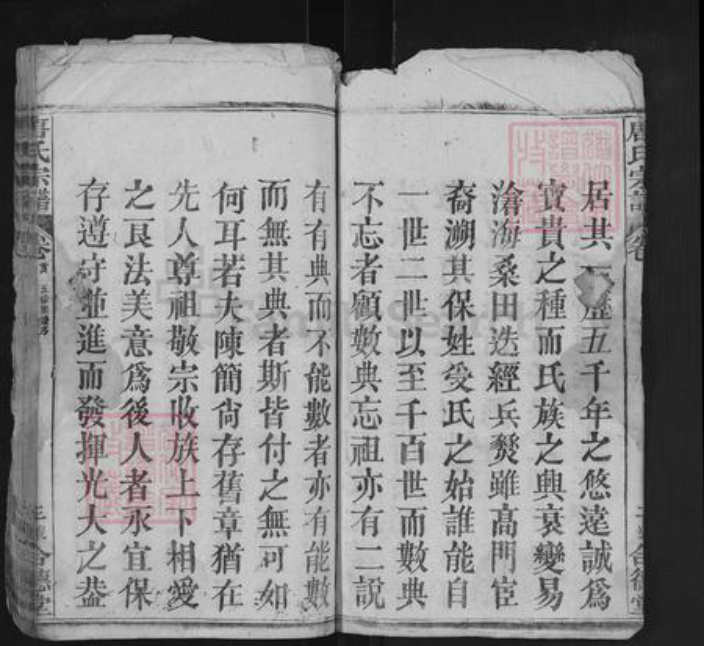 居其一歷五千年之悠遠誠為
寶貴之種而氏族之興衰變易
滄海桑田迭經兵燹雖高門宦
裔溯其保姓受氏之始誰能自
一世二世以至千百世而數典
不忘者顧數典忘祖亦有二說
有有典而不能數者亦有能數
而無其典者斯皆付之無可如
何耳若夫陳簡尙存舊章猶在
先人尊祖敬宗收族上下相愛
之良法美意爲後人者永宜保
存遵守並進而發揮光大之葢
唐氏宗譜 卷首
合德堂